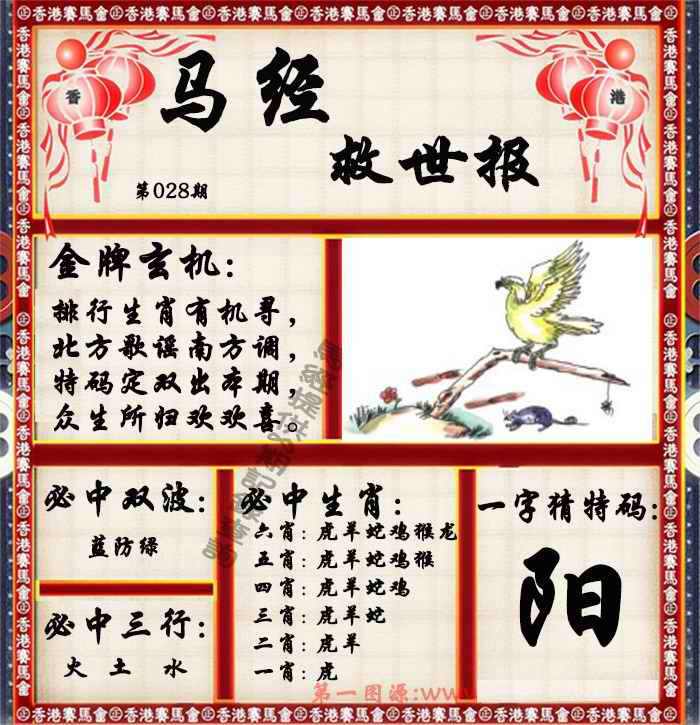 香港賽馬會
香 港
马经
救世报
第028期
金牌玄机：
排行生肖有机寻，
北方歌谣南方调，
特码定双出本期，
众生所归欢欢喜。
必中双波：
蓝防绿
必中三行：
火 土 水
必中生肖：
六肖：虎羊蛇鸡猴龙
五肖：虎羊蛇鸡猴
四肖：虎羊蛇鸡
三肖：虎羊蛇
二肖：虎羊
一肖：虎
一字猜特码：
阳
第一图源:www